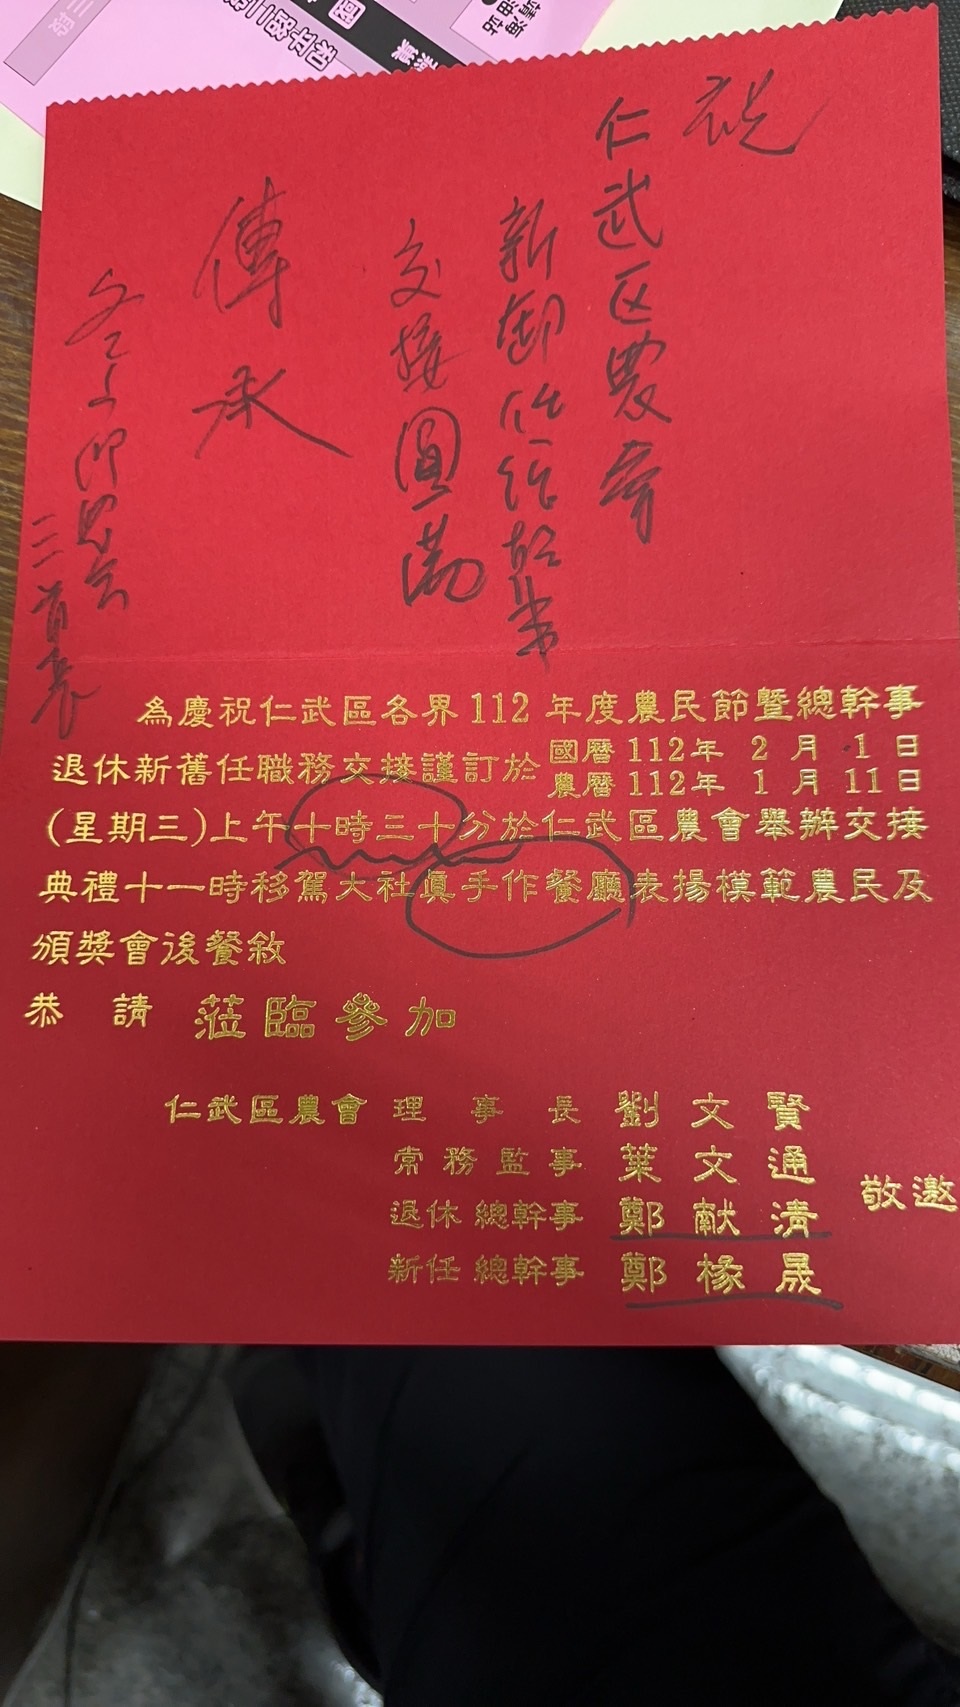 祝
仁武区農会
新卸任總幹事
交接圓滿
傳承
為慶祝仁武區各界112年度農民節暨總幹事
退休新舊任職務交接謹訂於國曆112年2月1日
農曆112年1月11日
(星期三)上午十時三十分於仁武區農會舉辦交接
典禮十一時移駕大社真手作餐廳表揚模範農民及
頒獎會後餐敘
恭請 蒞臨參加
仁武區農會 理事長 劉文賢
常務監事 葉文通
退休總幹事 鄭献清
新任總幹事 鄭椽晟
敬邀